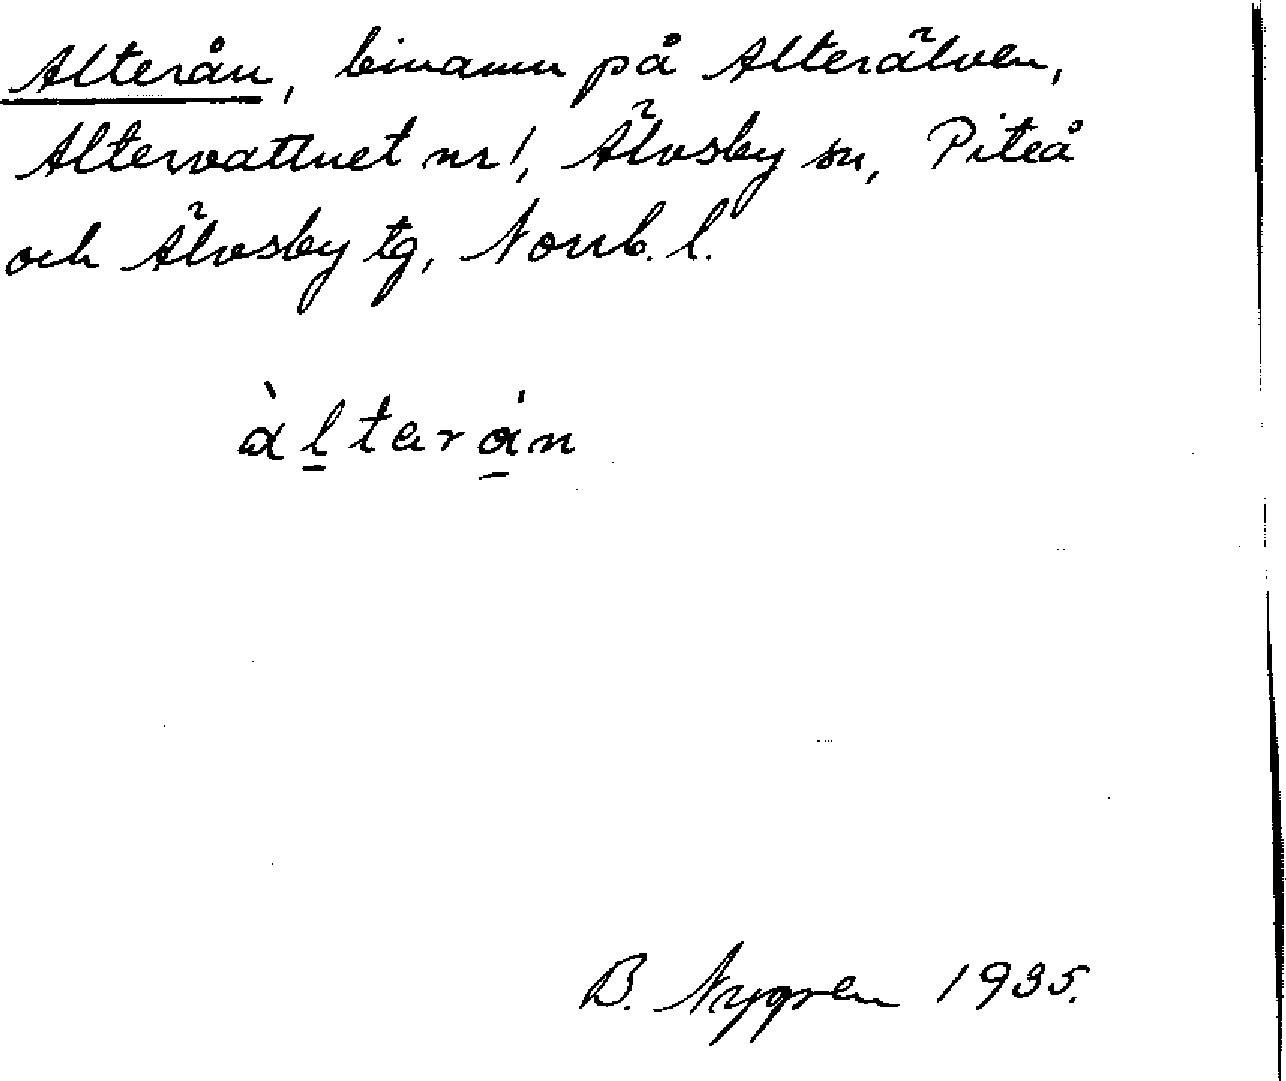 Alterån, binamn på Alterälven,
Altervattnet nr 1, Älvsby sn, Piteå
och Älvsby tg, Norrb. l.
àltarán
B. Nygren 1935.